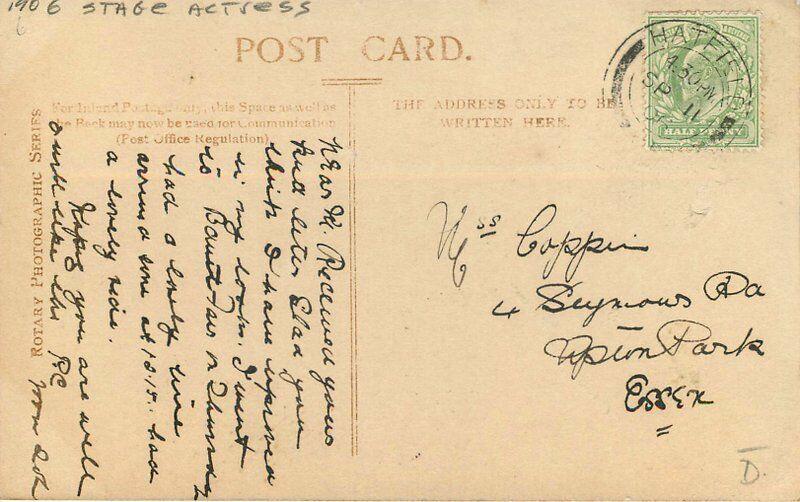 1906 STAGE ACTRESS
6
POST CARD.
For Inland Postage only, this Space as well as
the Back may now be used for Communication
(Post Office Regulation)
THE ADDRESS ONLY TO BE
WRITTEN HERE.
ROTARY PHOTOGRAPHIC SERIES
HATFIELD
4.30PM
SP 11
HALF PENNY
Dear M Received your
letter Glad you
think I have improved
in my looks. I went
to on Thursday
had a lovely time
arrived home at 12.15. had
a lovely ride.
Hope you are well
and like this P.C
Miss Coppin
4 Seymour Rd
Upton Park
ESSEX
D.